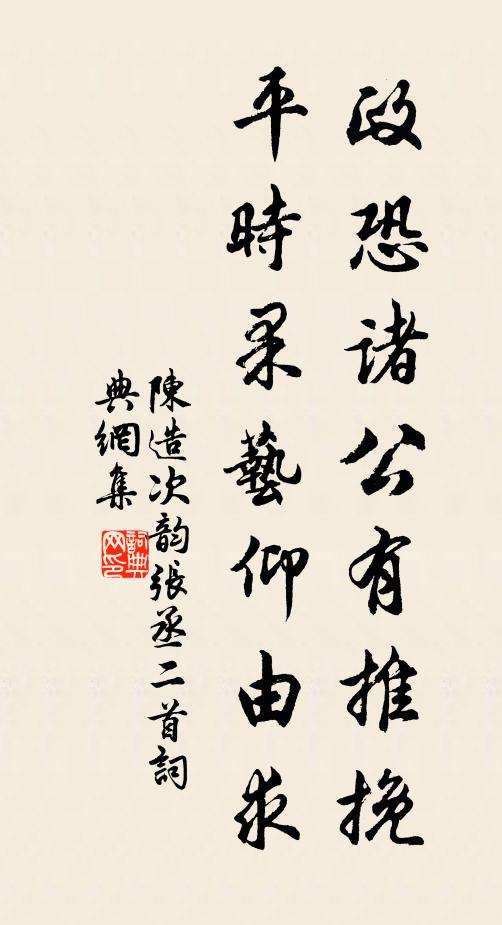 政恐諸公有推挽
平時果藝仰由求
陳造次韵張丞二首詞
典網集
詞典
网印